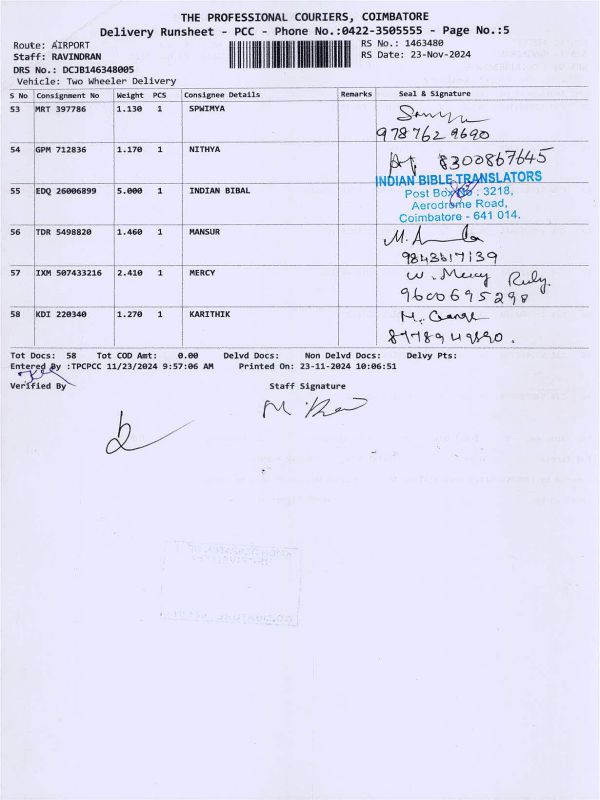 THE PROFESSIONAL COURIERS, COIMBATORE
Delivery Runsheet - PCC - Phone No.:0422-3505555 - Page No.:5
Route: AIRPORT
RS No.: 1463480
Staff: RAVINDRAN
RS Date: 23-Nov-2024
DRS No.: DCJB146348005
Vehicle: Two Wheeler Delivery
S No Consignment No Weight PCS Consignee Details Remarks Seal & Signature
53 MRT 397786 1.130 1 SPWIMYA
978762 9690
54 GPM 712836 1.170 1 NITHYA
8300867645
55 EDQ 26006899 5.000 1 INDIAN BIBAL
INDIAN BIBLE TRANSLATORS
Post Box No : 3218,
Aerodrome Road,
Coimbatore - 641 014.
56 TDR 5498820 1.460 1 MANSUR
9843617139
57 IXM 507433216 2.410 1 MERCY
W. Mercy Ruby.
9600695298
58 KDI 220340 1.270 1 KARITHIK
Tot Docs: 58 Tot COD Amt: 0.00 Delvd Docs: Non Delvd Docs: Delvy Pts:
Entered By :TPCPCC 11/23/2024 9:57:06 AM Printed On: 23-11-2024 10:06:51
Verified By Staff Signature